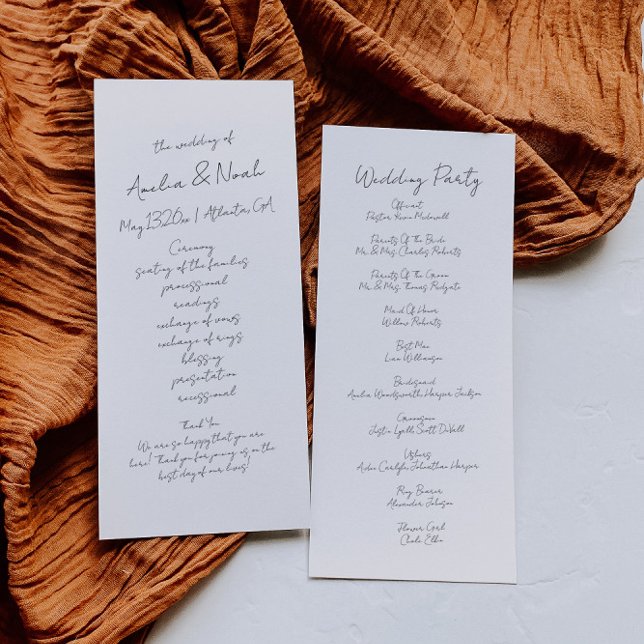 the wedding of
Amelia & Noah
May 13 20xx | Atlanta, GA
Ceremony
seating of the families
processional
readings
exchange of vows
exchange of rings
blessing
presentation
recessional
Thank You
We are so happy that you are
here! Thank you for joining us on the
best day of our lives!
Wedding Party
Officant
Pastor Kevin Mcdowell
Parents Of the Bride
Mr. & Mrs. Charles Roberts
Parents Of the Groom
Mr. & Mrs. Thomas Ridgate
Maid Of Honor
Willow Roberts
Best Man
Liam Williamson
Bridesmaid
Amelia Woodsworth, Harper Jackson
Groomsmen
Justin Lyall, Scott DiVall
Ushers
Adie Carlyle, Johnathan Harper
Ring Bearer
Alexander Johnson
Flower Girl
Chole Elba